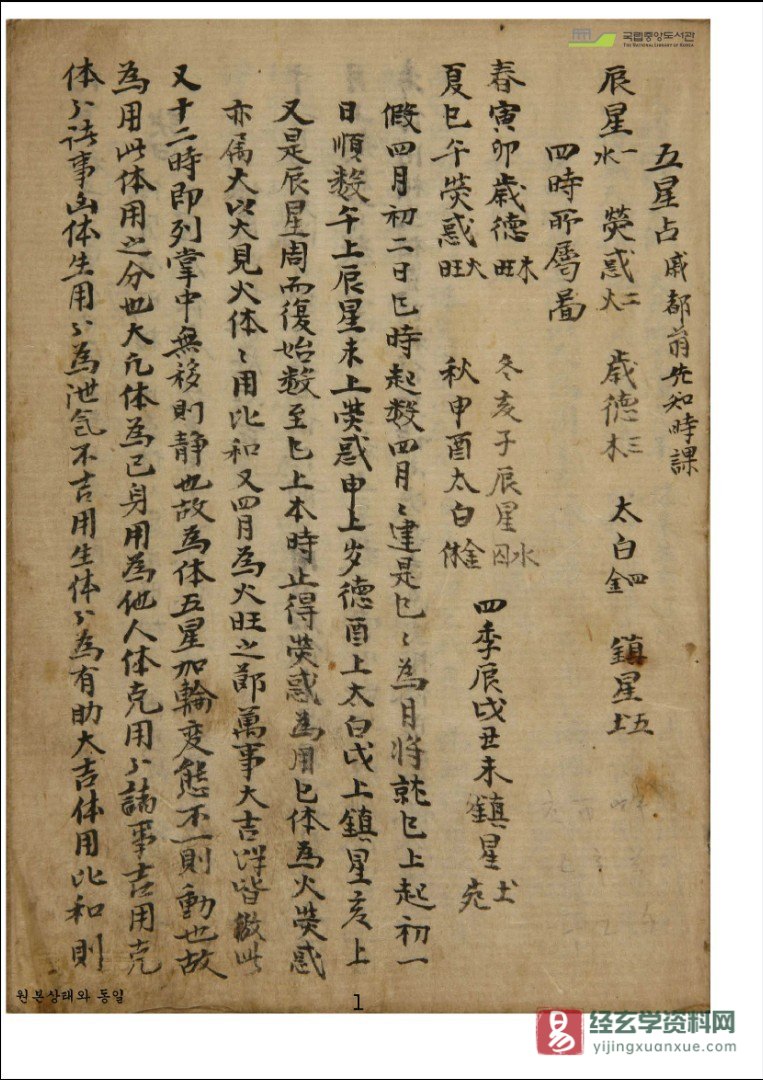 국립중앙도서관
THE NATIONAL LIBRARY OF KOREA
五星占 戚都前先知時課
辰星 水一 熒惑 火二 歲德 木三 太白 金四 鎮星 土五
四時所屬圖
春寅卯歲德 木旺 冬亥子辰星 水囚
夏巳午熒惑 火旺 秋申酉太白 金休 四季辰戌丑未鎮星 土
假四月初二日巳時起数四月〻建是巳〻為月将就巳上起初一
日順数午上辰星未上熒惑申上岁德酉上太白戌上鎮星亥上
又是辰星周而復始数至巳上本時止得熒惑為用巳体為火熒惑
亦属火以火見火体〻用比和又四月為火旺之節萬事大吉詳皆倣此
又十二時即列掌中無移則静也故為体五星加輪変態不一則動也故
為用此体用之分也大凢体為己身用為他人体克用〻謀事吉用克
体〻诸事凶体生用〻為泄气不吉用生体〻為有助大吉体用比和則
원본상태와 동일
1
易
经玄学资料网
yijingxuanxue.com